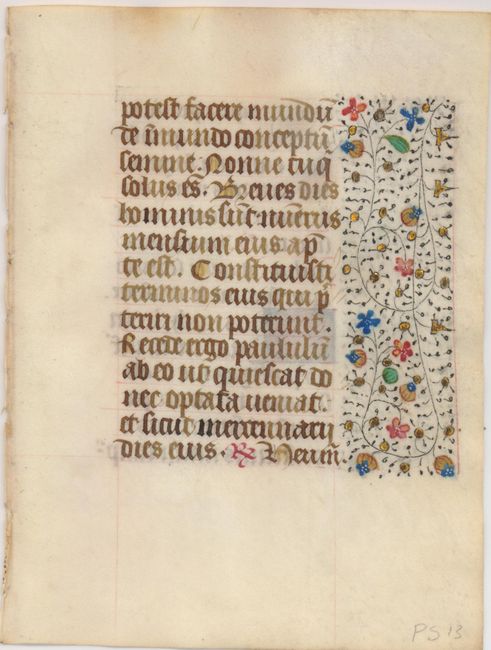 potest facere mundū
de īmundo conceptū
semine. Nonne tu q
solus es. Breues dies
hominis sūt. nūerus
mensium eius ap̄
te est. Constituisti
terminos eius qui p̄
teriri non poterunt.
Recede ergo paululū
ab eo ut quiescat do
nec optata ueniat.
et sicut mercennarii
dies eius. ℟
PS 13